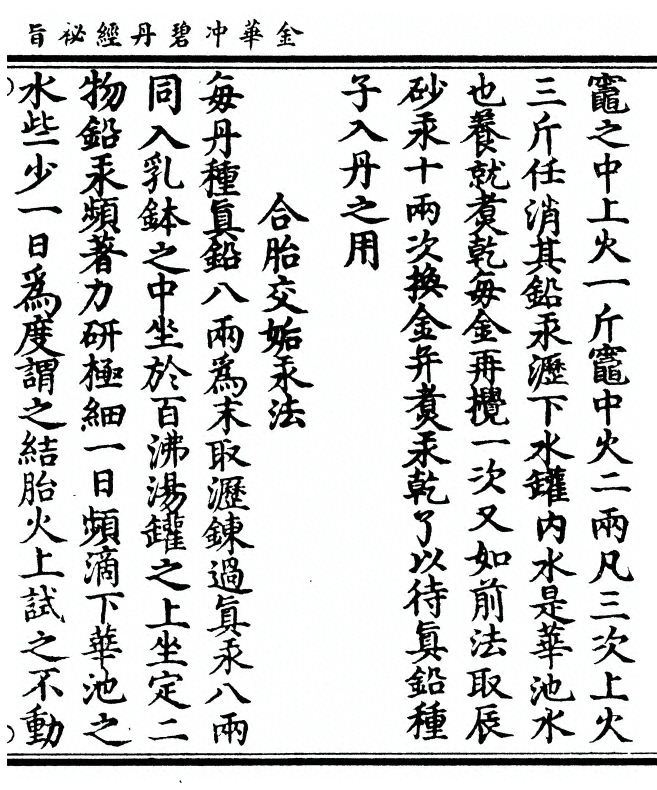 金華冲碧丹經祕旨
竈之中上火一斤竈中火二兩凡三次上火
三斤任消其鉛汞瀝下水罐内水是華池水
也養就煮乾每金再攪一次又如前法取辰
砂汞十兩次換金弁煮汞乾了以待眞鉛種
子入丹之用
合胎交姤汞法
每丹種眞鉛八兩爲末取瀝鍊過眞汞八兩
同入乳鉢之中坐於百沸湯罐之上坐定二
物鉛汞頻著力研極細一日頻滴下華池之
水些少一日爲度謂之結胎火上試之不動